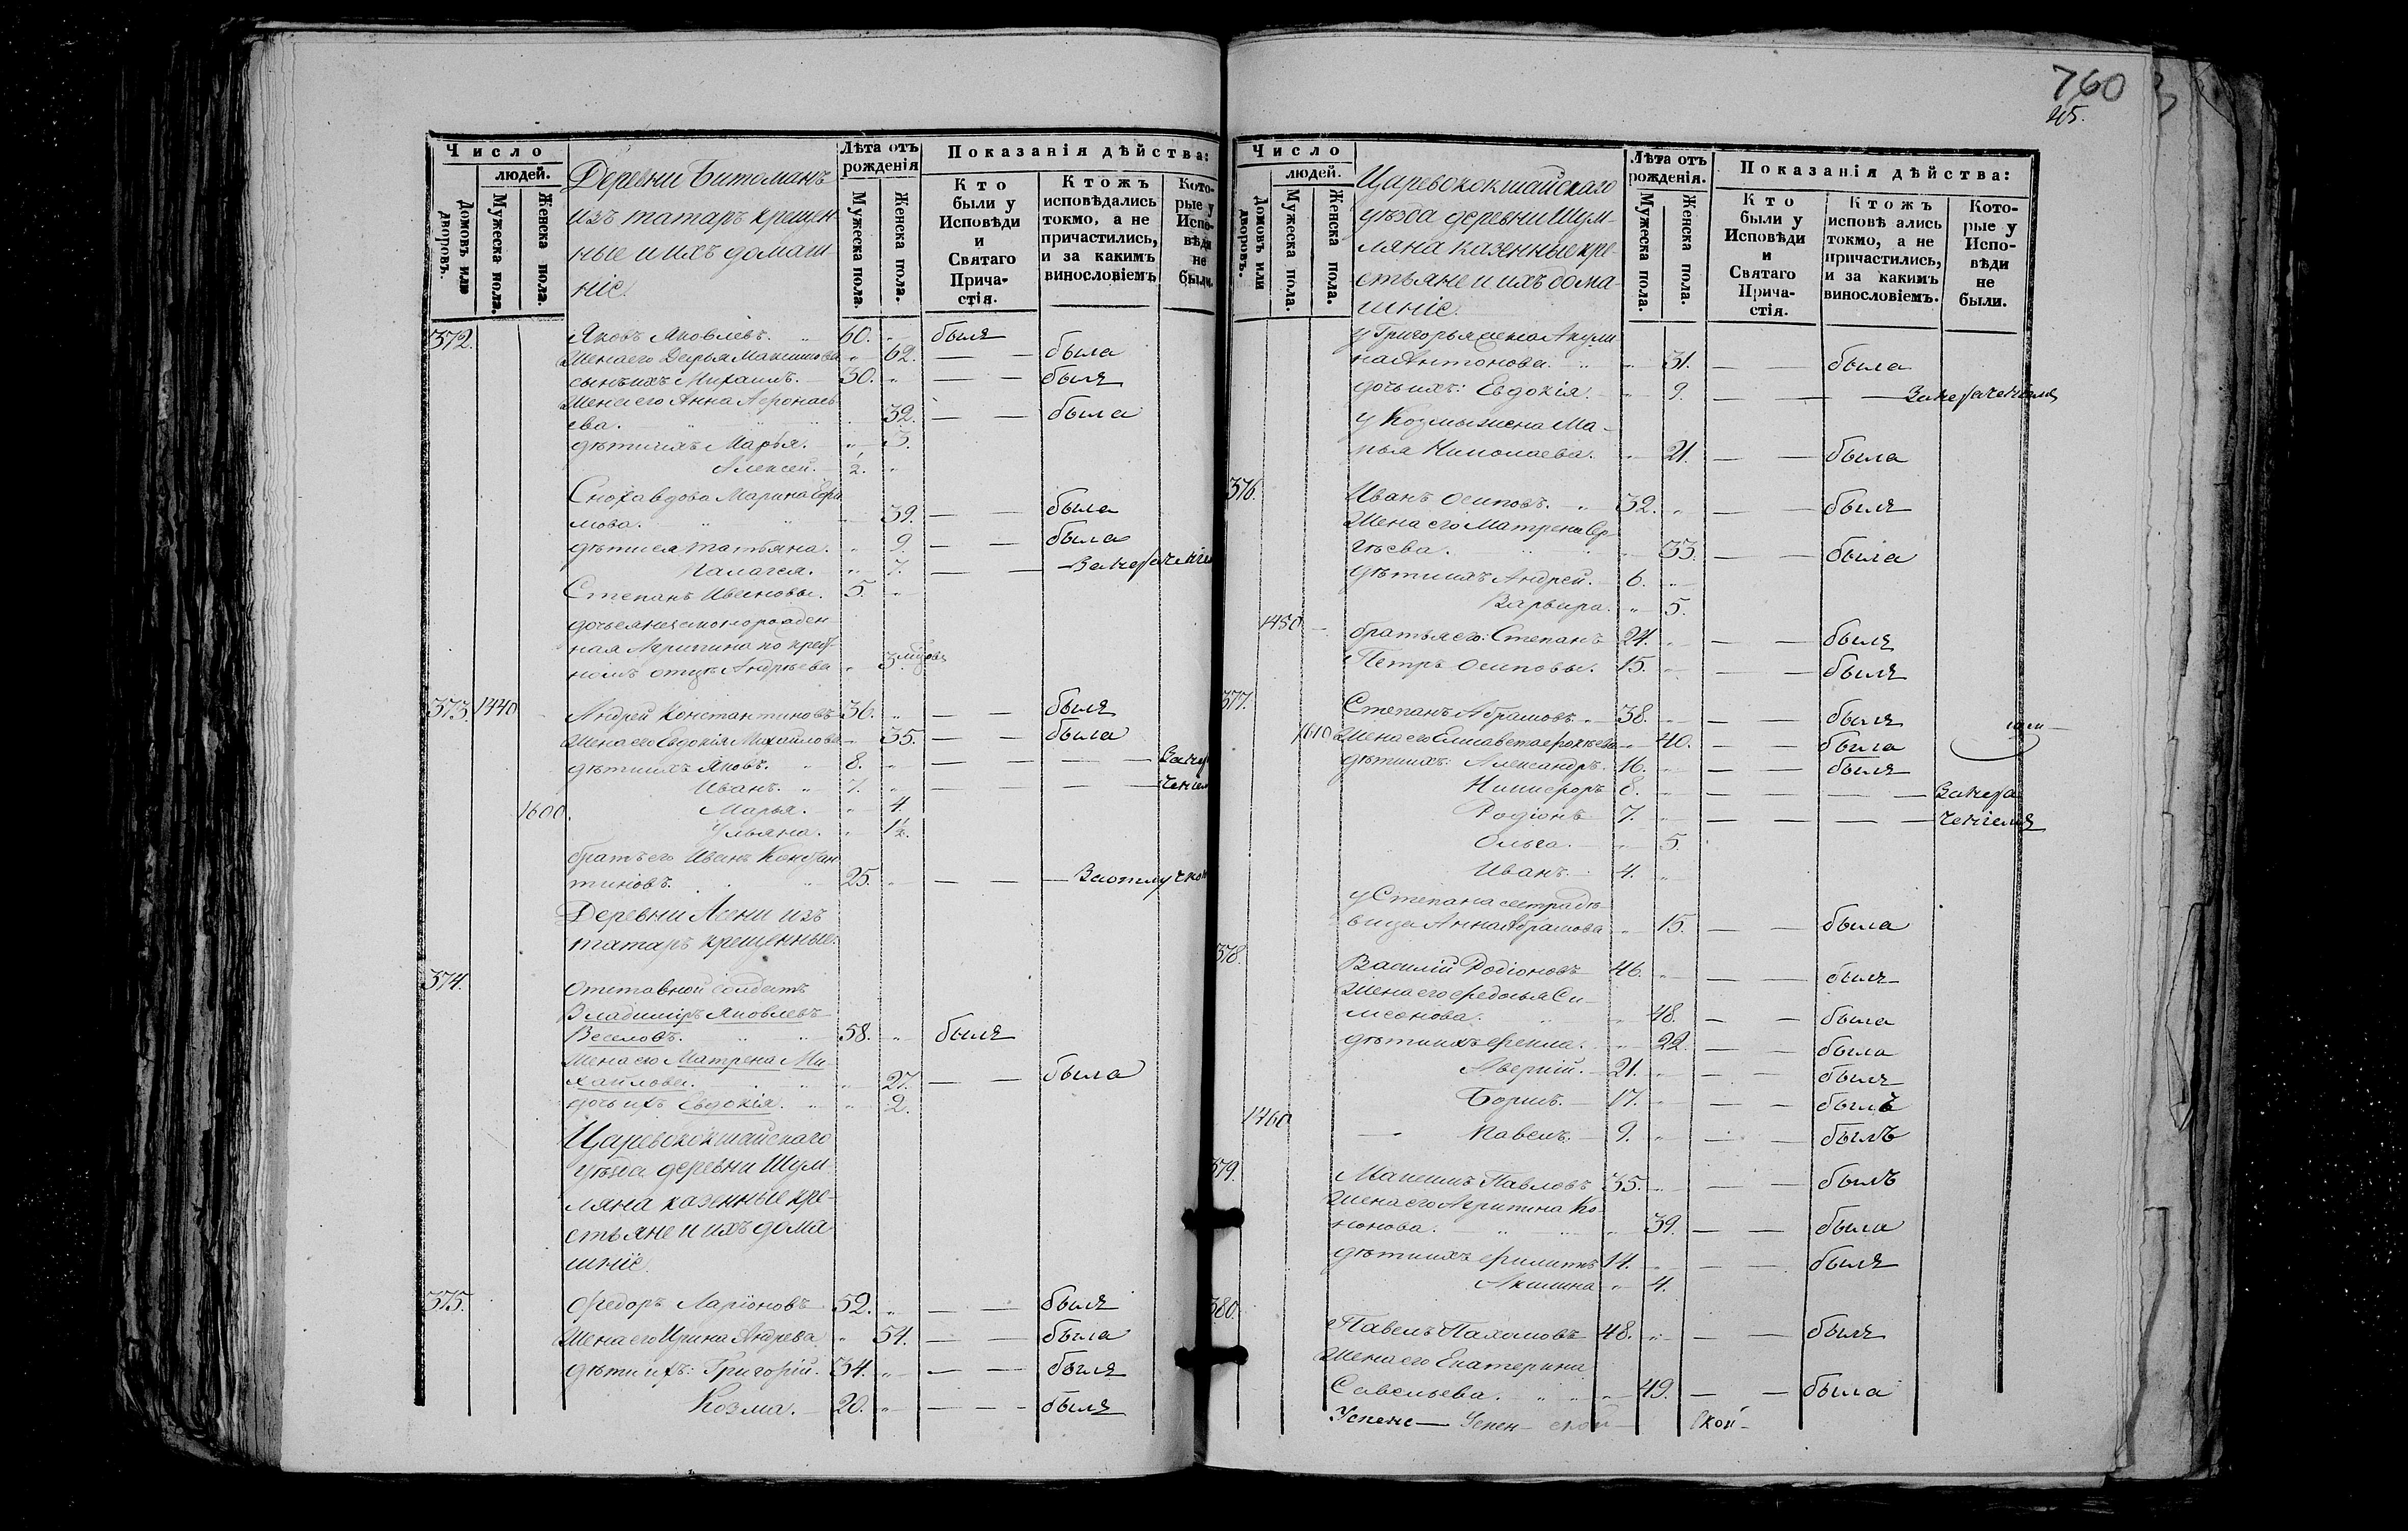 760
Число
людей.
Домовъ или дворовъ.
Мужеска пола.
Женска пола.
Деревни Битоманъ
изъ татаръ крещен-
ные и ихъ домаш-
ніе.
Лѣта отъ рожденія
Мужеска пола.
Женска пола.
Показанія дѣйства:
Кто были у Исповѣди и Святаго Прича-стія.
Ктожъ исповѣдались токмо, а не причастились, и за какимъ винословіемъ
Кото-рые у Испо-вѣди не были.
372. Яковъ Яковлевъ. 60. былъ
Жена его Дарья Максимова 62. — — была
сынъ ихъ Михаилъ. 30. — — былъ
Жена его Анна Афонась-
ева. 32. — — была
дѣти ихъ Марья. 3.
Алексей. 1/2.
Сноха вдова Марина Ефи
мова. 39. — — была
дѣти ея Татьяна. 9. — — была
Палагея. 7. — —
Степанъ Ивановы. 5.
ная Агрипина по крест-
номъ отцѣ Андреева 3
373. 1440 Андрей Константиновъ 36. — — былъ
Жена его Евдокія Михайлова 35. — — была
дѣти ихъ Яковъ. 8. — — — —
Иванъ. 7. — — — —
1600. Марья. 4.
Ульяна. 1 1/2.
братъ его Иванъ Констан
тиновъ. 25. — — — За отлучкою
Деревни Асени изъ
татаръ крещенные.
374. Отставной солдатъ
Владимиръ Яковлевъ
Веселовъ. 58. былъ
Жена его Матрена Ми-
хайлова. 27. — — была
дочь ихъ Евдокія. 2.
Царевококшайскаго
уѣзда деревни Шум-
ляна казенные кре-
стьяне и ихъ дома-
шніе.
375. Федоръ Ларіоновъ 52. — — былъ
Жена его Ирина Андрева 54. — — была
дѣти ихъ: Григорій. 34. — — былъ
Козма. 20. — — былъ
Число
людей.
Домовъ или дворовъ.
Мужеска пола.
Женска пола.
Царевококшайскаго
уѣзда деревни Шум-
ляна казенные кре-
стьяне и ихъ дома-
шніе.
Лѣта отъ рожденія.
Мужеска пола.
Женска пола.
Показанія дѣйства:
Кто были у Исповѣди и Святаго Прича-стія.
Ктожъ исповѣ ались токмо, а не причастились, и за какимъ винословіемъ.
Кото-рые у Испо-вѣди не были.
у Григорья жена Акули
на Антонова. 31. — — была
дочь ихъ: Евдокія. 9. — — —
у Козмы жена Ма-
рья Николаева. 21. — — была
376. Иванъ Осиповъ. 32. — — былъ
Жена его Матрена Сер-
гѣева. 33. — — была
дѣти ихъ Андрей. 6.
Варвара. 5.
1450 братья его: Степанъ 24. — — былъ
Петръ Осиповы. 15. — — былъ
377. Степанъ Абрамовъ 38. — — былъ
1610 Жена его Елисавета 40. — — была
дѣти ихъ: Александръ. 16. — — былъ
Никифоръ 8. — — — —
Родіонъ 7. — — — —
Ольга. 5.
Иванъ. 4.
у Степана сестра дѣ-
вица Анна Абрамова 15. — — была
378. Василій Родіоновъ 46. — — былъ
Жена его Федосья Си-
меонова. 48. — — была
дѣти ихъ Фекла. 22. — — была
Аверкій. 21. — — былъ
Борисъ. 17. — — былъ
1460 Павелъ. 9. — — былъ
379. Максимъ Павловъ 35. — — былъ
Жена его Агрипина Ко-
нонова. 39. — — была
дѣти ихъ Филипъ 14. — — былъ
Акилина 4.
380. Павелъ Пахомовъ 48. — — былъ
Жена его Екатерина
Савельева. 49. — — была
Успен- ской- ской-